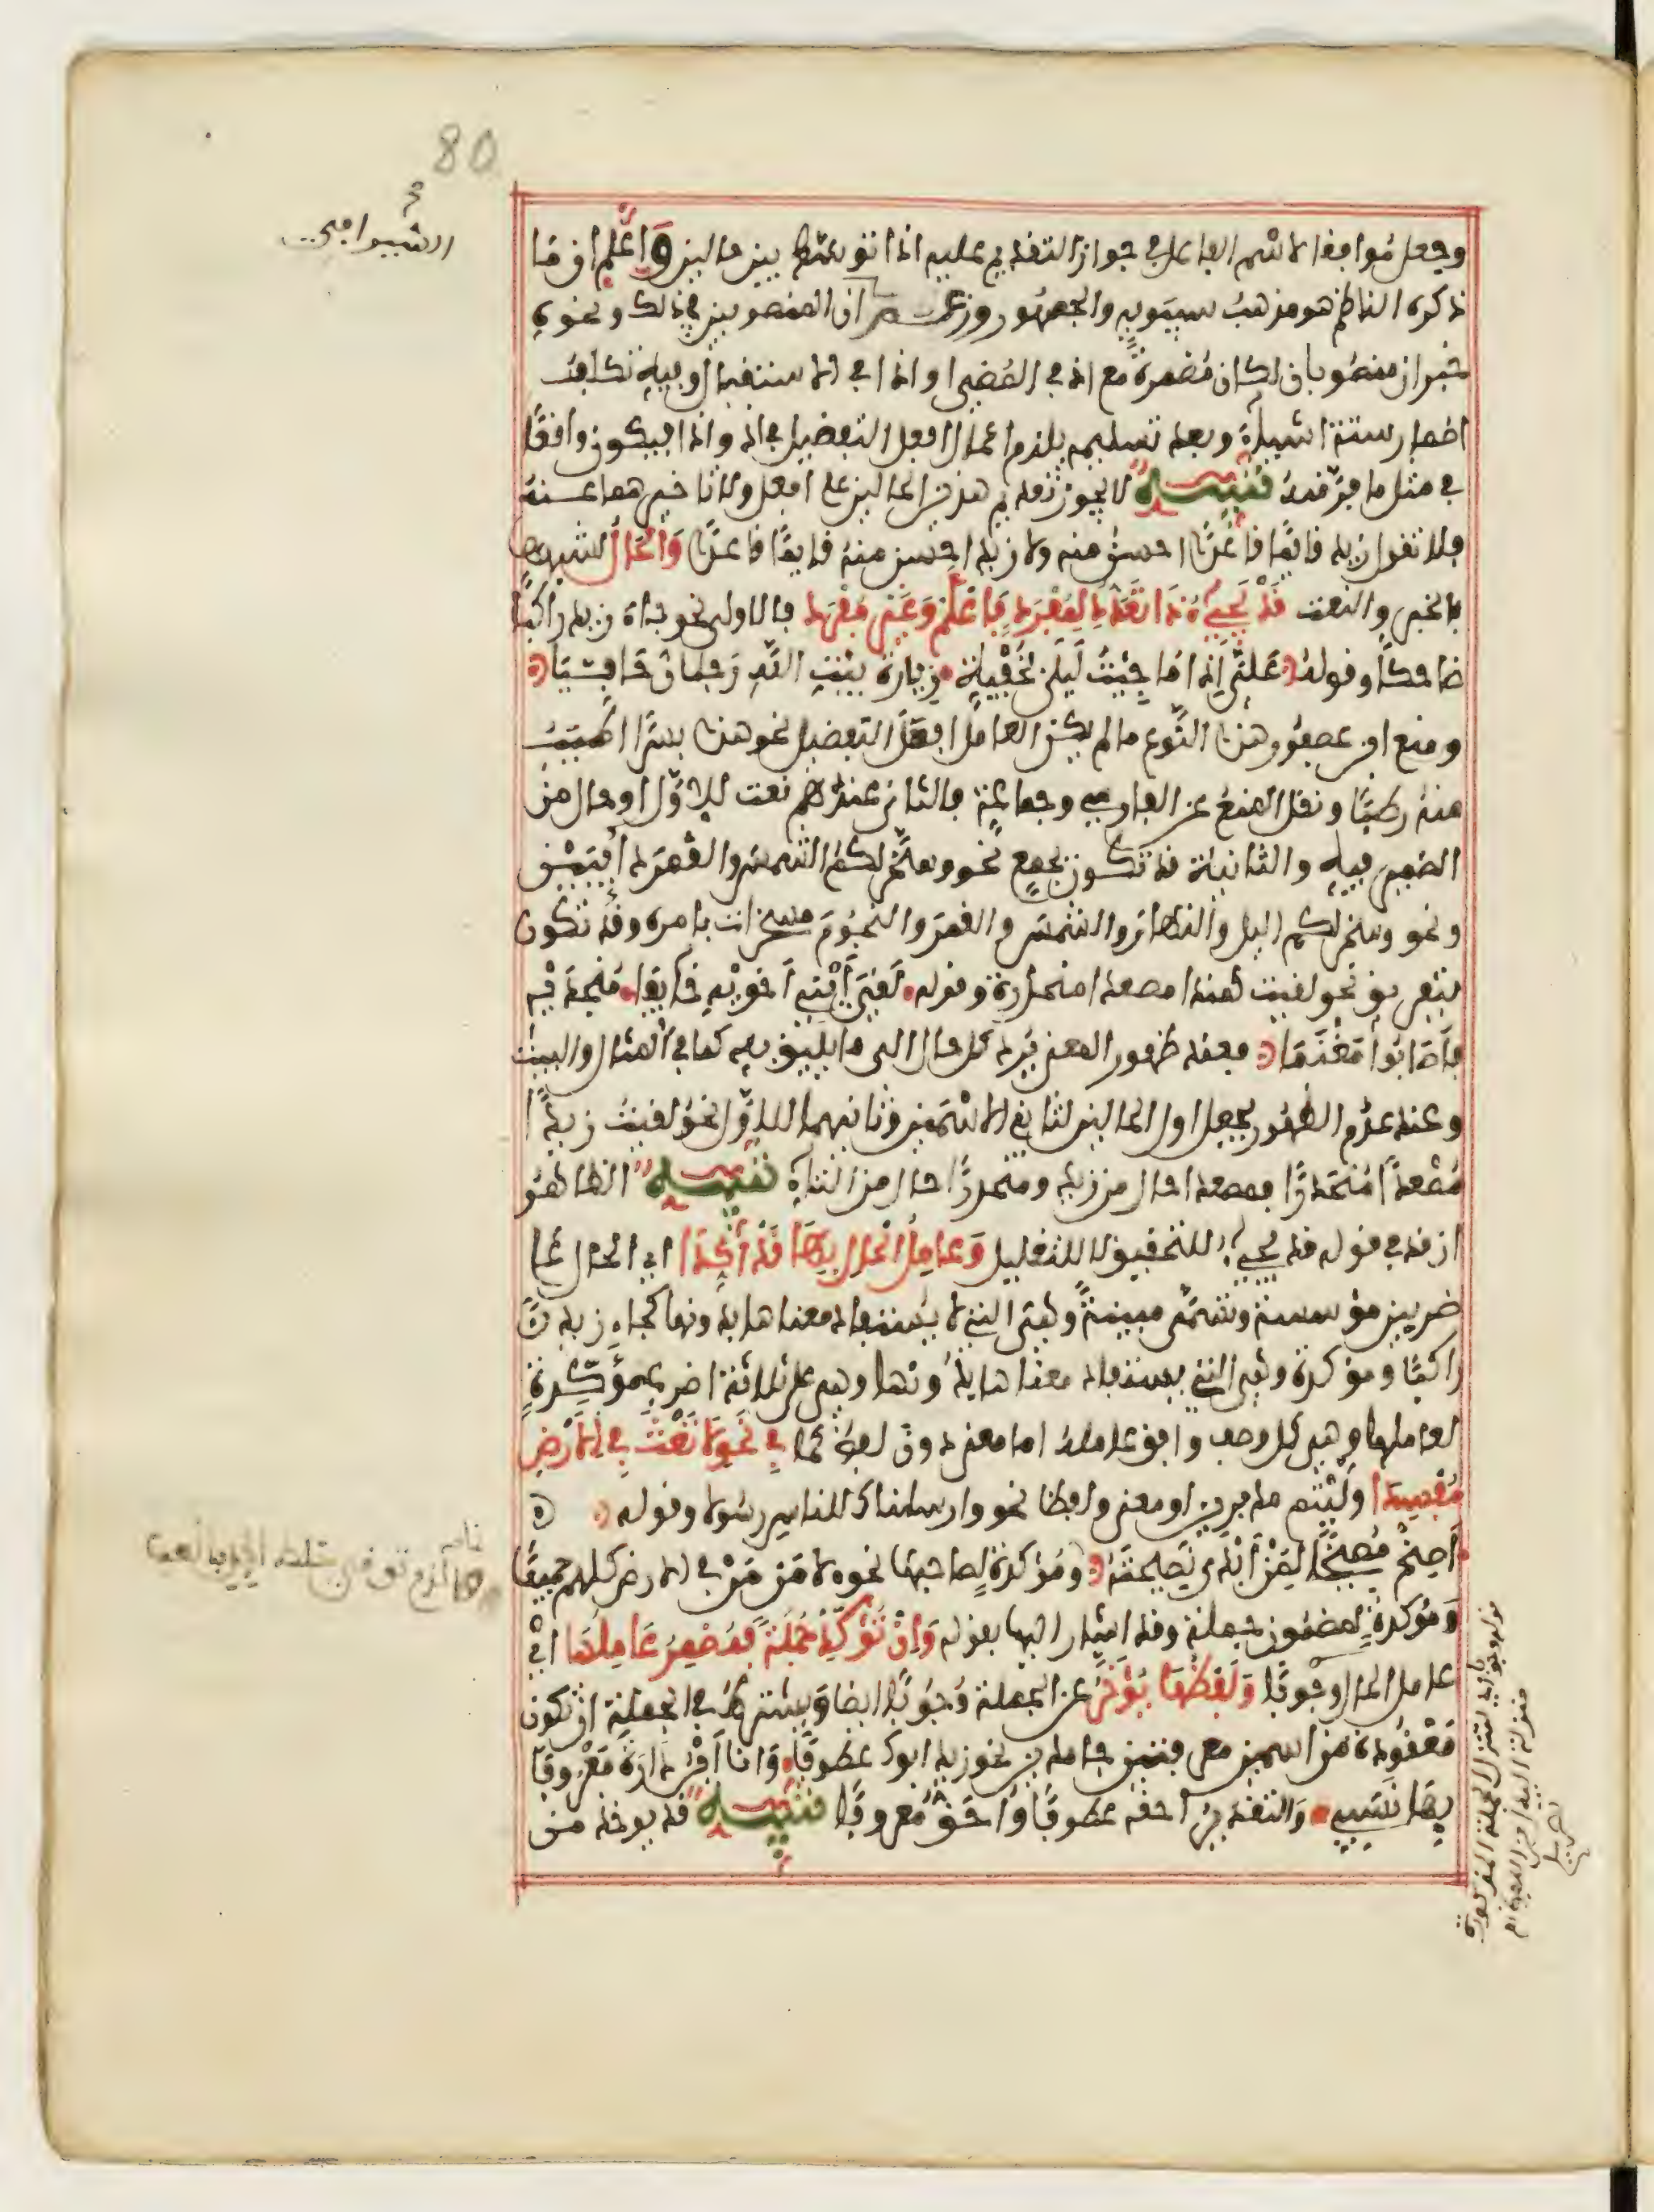 80
السيرافي
وجعل موافقا لاسم الفاعل في جواز التقديم عليه اذا توسط بين حالين واعلم ان ما
ذكره الناظم هو مذهب سيبويه والجمهور وزعم ان المنصوبين في ذلك ونحوه
خبران منصوبان لكان مضمرة مع اذ في المضي او اذا في الاستقبال وفيه تكلف
اضمار ستة اشياء وبعد تسليمه يلزم اعمال افعل التفضيل في اذ واذا فيكون واقعا
في مثل ما فر منه تنبيه لا يجوز تقديم هذين الحالين على افعل ولا تاخيرهما عنه
فلا تقول زيد قائما قاعدا احسن منه ولا زيد احسن منه قايما قاعدا والحال لشبهها
بالخبر والنعت قد يجيء ذا تعدد لمفرد فاعلم وغير مفرد فالاول نحو جاء زيد راكبا
ضاحكا وقوله علي اذا ما جئت ليلى بخفية زيارة بيت الله رجلان حافيا
ومنع ابن عصفور هذا النوع ما لم يكن العامل افعل التفضيل نحو هذا بسرا اطيب
منه رطبا ونقل المنع عن الفارسي وجماعة فالثاني عندهم نعت للاول او حال من
الضمير فيه والثانية قد تكون بجمع نحو وسخر لكم الشمس والقمر دائبين
ونحو وسخر لكم اليل والنهار والشمس والقمر والنجوم مسخرات بامره وقد تكون
بتفريق نحو لقيت هندا مصعدا منحدرة وقوله لقي ابني اخويه خايفا منجديه
فاصابوا مغنما فعند ظهور المعنى يرد كل حال الى ما يليق به كما في المثال والبيت
وعند عدم الظهور يجعل اول الحالين لثاني الاسمين وثانيهما للاول نحو لقيت زيدا
مصعدا منحدرا فمصعدا حال من زيد ومنحدرا حال من التاء تنبيه الظاهر
ان قد في قوله قد يجيء للتحقيق لا للتقليل وعامل الحال بها قد اكدا اي الحال على
ضربين مؤسسة وتسمى مبينة وهي التي لا يستفاد معناها بدونها كجاء زيد
راكبا ومؤكدة وهي التي يستفاد معناها بدونها وهي على ثلاثة اضرب مؤكدة
لعاملها وهي كل وصف وافق عامله اما معنى دون لفظ كما في نحو لا تعث في الارض
مفسدا وليتم مدبرين او معنى ولفظا نحو وارسلناك للناس رسولا وقوله
اصخ مصيخا لمن ابدى نصيحته ومؤكدة لصاحبها نحو لامن من في الارض كلهم جميعا
ومؤكدة لمضمون جملة وقد اشار اليها بقوله وان تؤكد جملة فمضمر عاملها اي
عامل الحال وجوبا ولفظها يؤخر عن الجملة وجوبا ايضا ويشترط في الجملة ان تكون
معقودة من اسمين معرفتين جامدين نحو زيد ابوك عطوفا وانا ابن دارة معروفا
بها نسبي والتقدير احقه عطوفا واحق معروفا تنبيه قد يوخذ من